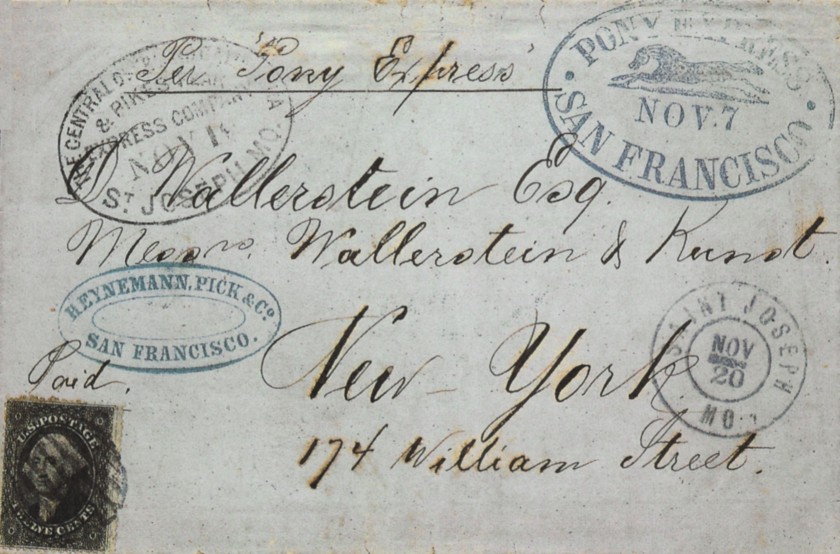 Per Pony Express
PONY EXPRESS
NOV. 7
SAN FRANCISCO
THE CENTRAL
& PIKES
EXPRESS COMPANY
NOV
ST JOSEPH MO.
D Wallerstein Esq.
Messrs. Wallerstein & Kunst.
HEYNEMANN, PICK & Co
SAN FRANCISCO.
New York
SAINT JOSEPH
NOV
20
MO.
Paid.
174 William Street.
U.S. POSTAGE
TWELVE CENTS